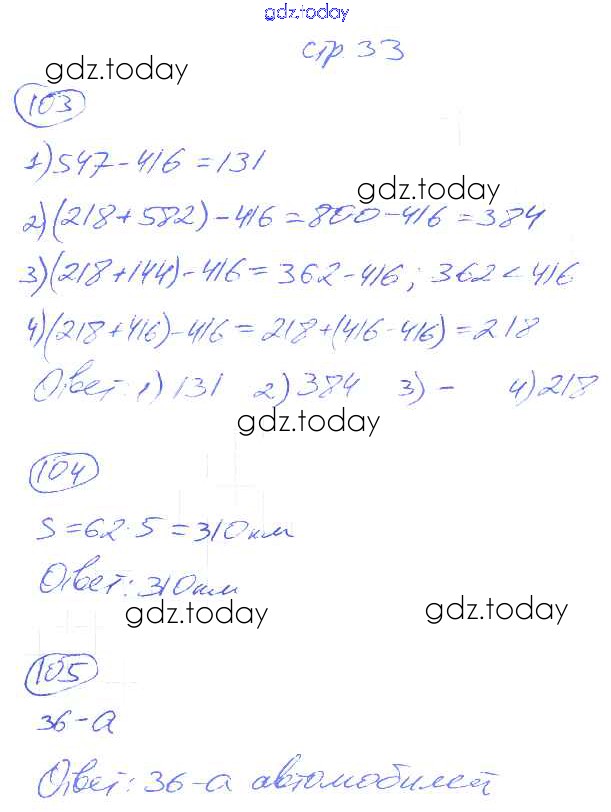 gdz.today
стр 33
gdz.today
103
1) 547 - 416 = 131
gdz.today
2) (218 + 582) - 416 = 800 - 416 = 384
3) (218 + 144) - 416 = 362 - 416; 362 < 416
4) (218 + 416) - 416 = 218 + (416 - 416) = 218
Ответ: 1) 131 2) 384 3) - 4) 218
gdz.today
104
S = 62 · 5 = 310 км
Ответ: 310 км
gdz.today gdz.today
105
36 - a
Ответ: 36 - a автомобилей